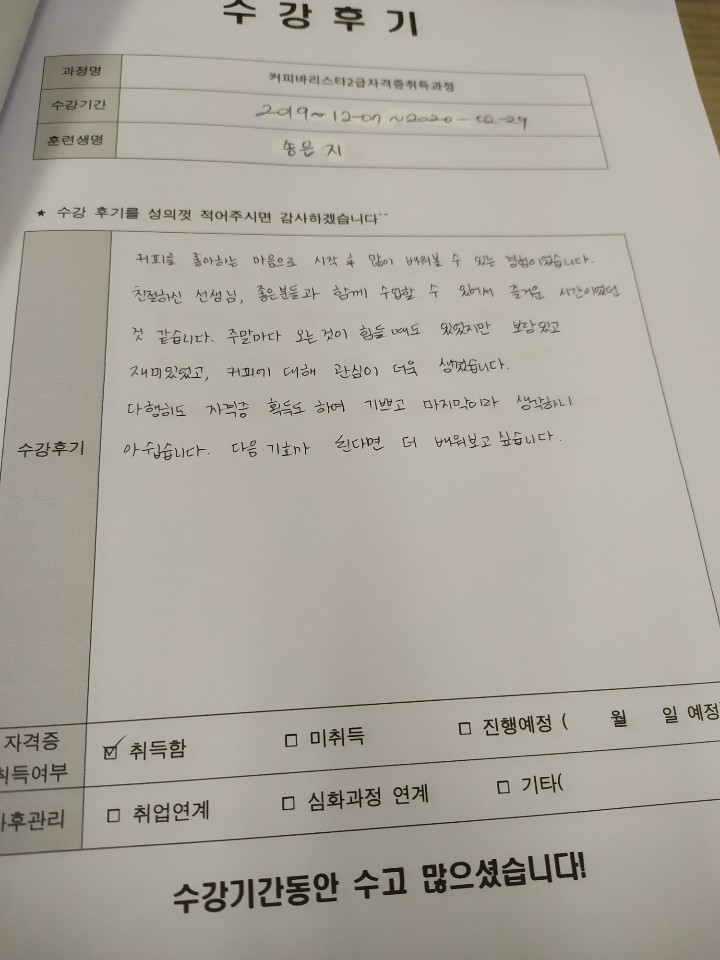 수강후기
과정명 커피바리스타2급자격증취득과정
수강기간 2019~12-07~2020-02-29
훈련생명 송은지
★ 수강 후기를 성의껏 적어주시면 감사하겠습니다^^
커피를 좋아하는 마음으로 시작 후 많이 배워볼 수 있는 경험이었습니다.
친절하신 선생님, 좋은분들과 함께 수업할 수 있어서 즐거운 시간이었던
것 같습니다. 주말마다 오는것이 힘들때도 있었지만 보람있고
재미있었고, 커피에 대해 관심이 더욱 생겼습니다.
다행히도 자격증 획득도 하며 기쁘고 마지막이라 생각하니
수강후기 아쉽습니다. 다음 기회가 된다면 더 배워보고 싶습니다.
자격증
취득여부 ☑ 취득함 □ 미취득 □ 진행예정 ( 월 일 예정
사후관리 □ 취업연계 □ 심화과정 연계 □ 기타(
수강기간동안 수고 많으셨습니다!